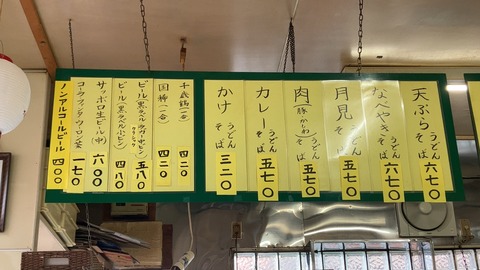 天ぷら うどん そば 六七〇
なべやき うどん そば 六七〇
月見 うどん そば 五七〇
肉 うどん そば 五七〇
カレー うどん そば 五七〇
かけ うどん そば 三二〇
千歳鶴(一合) 四二〇
国稀(一合) 四二〇
ビール(黒ラベル 五八〇
ビール(黒ラベル小ビン) 四八〇
サッポロ生ビール(中) 六〇〇
コーラ 一七〇
ノンアルコールビール 四〇〇